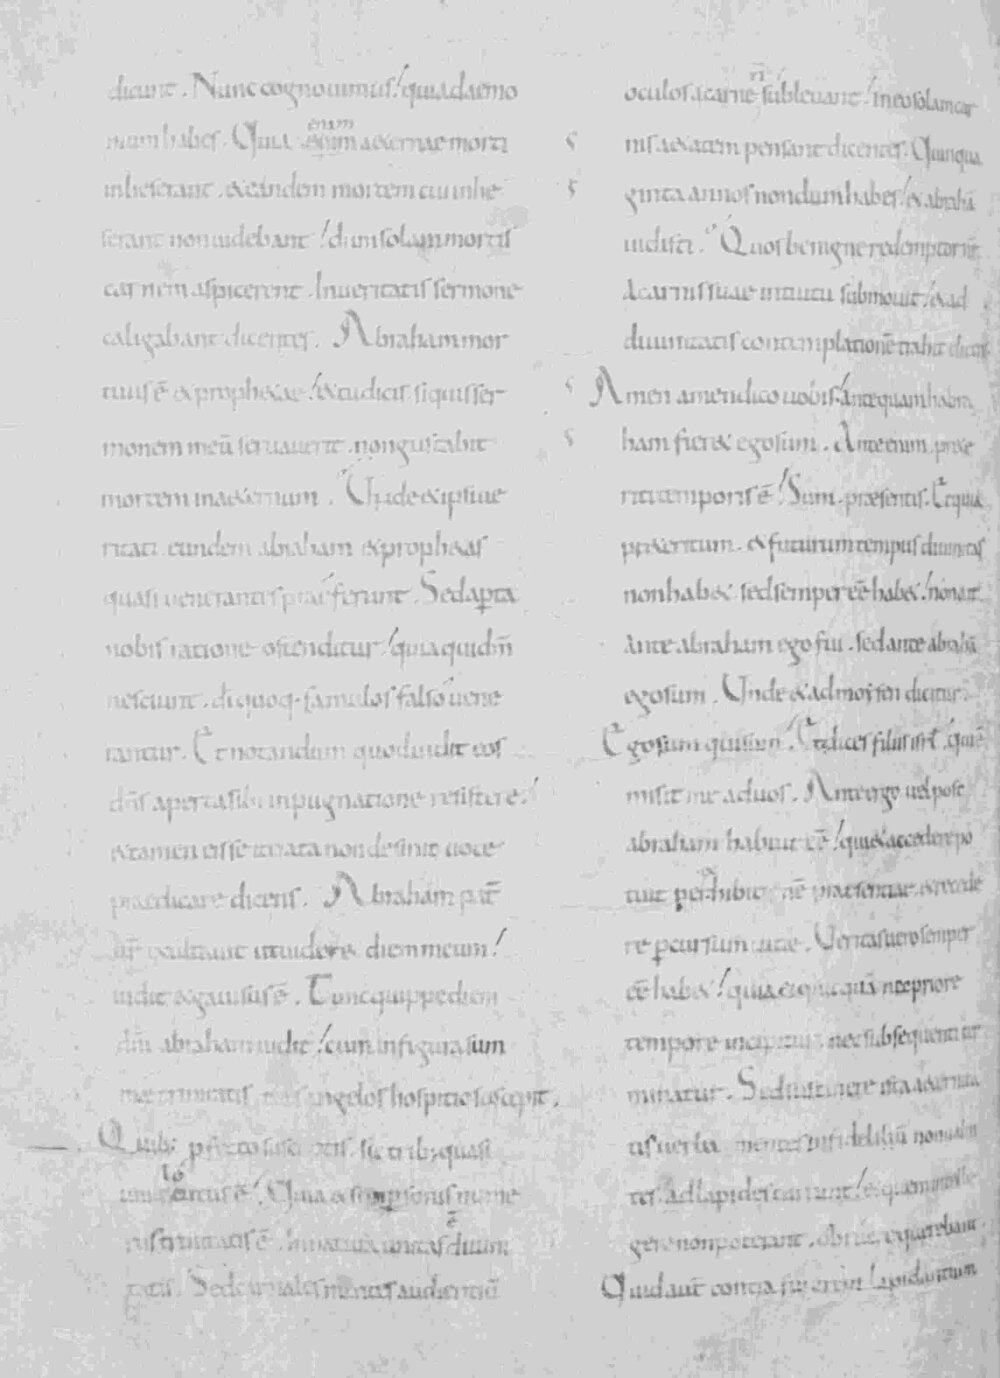 dicunt. Nunc cognouimus! quia daemo
nium habes. Quia enim aeternae morti
inheserant. & eandem mortem cui inhe
serant non uidebant! dum solam mortis
carnem aspicerent. In ueritatis sermone
caligabant dicentes. Abraham mor
tuus ē & prophetae! & tu dicis si quis ser
monem meū seruauerit. non gustabit
mortem in aeternum. Unde & ipsi ue
ritati. eundem abraham & prophetas
quasi uenerantes praeferunt. Sed aperta
nobis ratione ostenditur! quia qui dm̄
nesciunt. di quoq. famulos falso uene
rantur. Et notandum quod uidit eos
dn̄s aperta sibi inpugnatione resistere!
& tamen eis se iterata non desinit uoce
praedicare dicens. Abraham pat̄
ur̄ exultauit ut uider& diem meum!
uidit & gauisus ē. Tunc quippe diem
dn̄i abraham uidit! cum in figura sum
mae trinitatis. tres angelos hospitio suscepit.
Quib; pfecto susceptis. sic trib; quasi
uni locutus ē! Quia & si in personis nume
rus trinitatis ē. in natura unitas diuini
tatis ē. Sed carnales mentes audientiū
oculos a carne n̄ subleuant! in eo solam car
nis aetatem pensant dicentes. Quinqua
ginta annos nondum habes! & abrahā
uidisti. Quos benigne redemptor nr̄
a carnis suae intuitu submouit! & ad
diuinitatis contemplationē trahit dicens
Amen amen dico uobis! antequam habra
ham fier& ego sum. Ante enim. prae
riti temporis ē! Sum. praesentis. Et quia
praeteritum. & futurum tempus diuinitas
non hab&. sed semper eē hab&! non ait
ante abraham ego fui. sed ante abrahā
ego sum. Unde & ad moysen dicitur.
Ego sum qui sum! Et dices filiis isrl̄. qui ē
misit me ad uos. Ante ergo uel post
abraham habuit eē! qui & accedere po
tuit per exhibitionē praesentiae. & recede
re p cursum uitae. Ueritas uero semper
eē hab&! quia ei quicquā nec priore
tempore incipitur. nec subsequenti ter
minatur. Sed sustinere ista aeternita
tis uerba mentes infideliū non ualen
tes. ad lapides currunt! & quem intelle
gere non poterant. obruere querebant.
Quid aut̄ contra furorem lapidantium